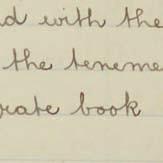 d with the
the teneme
rate book